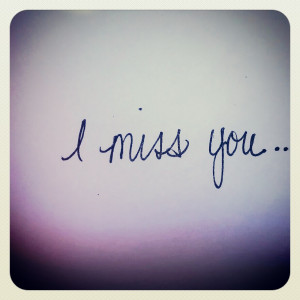 I miss you..